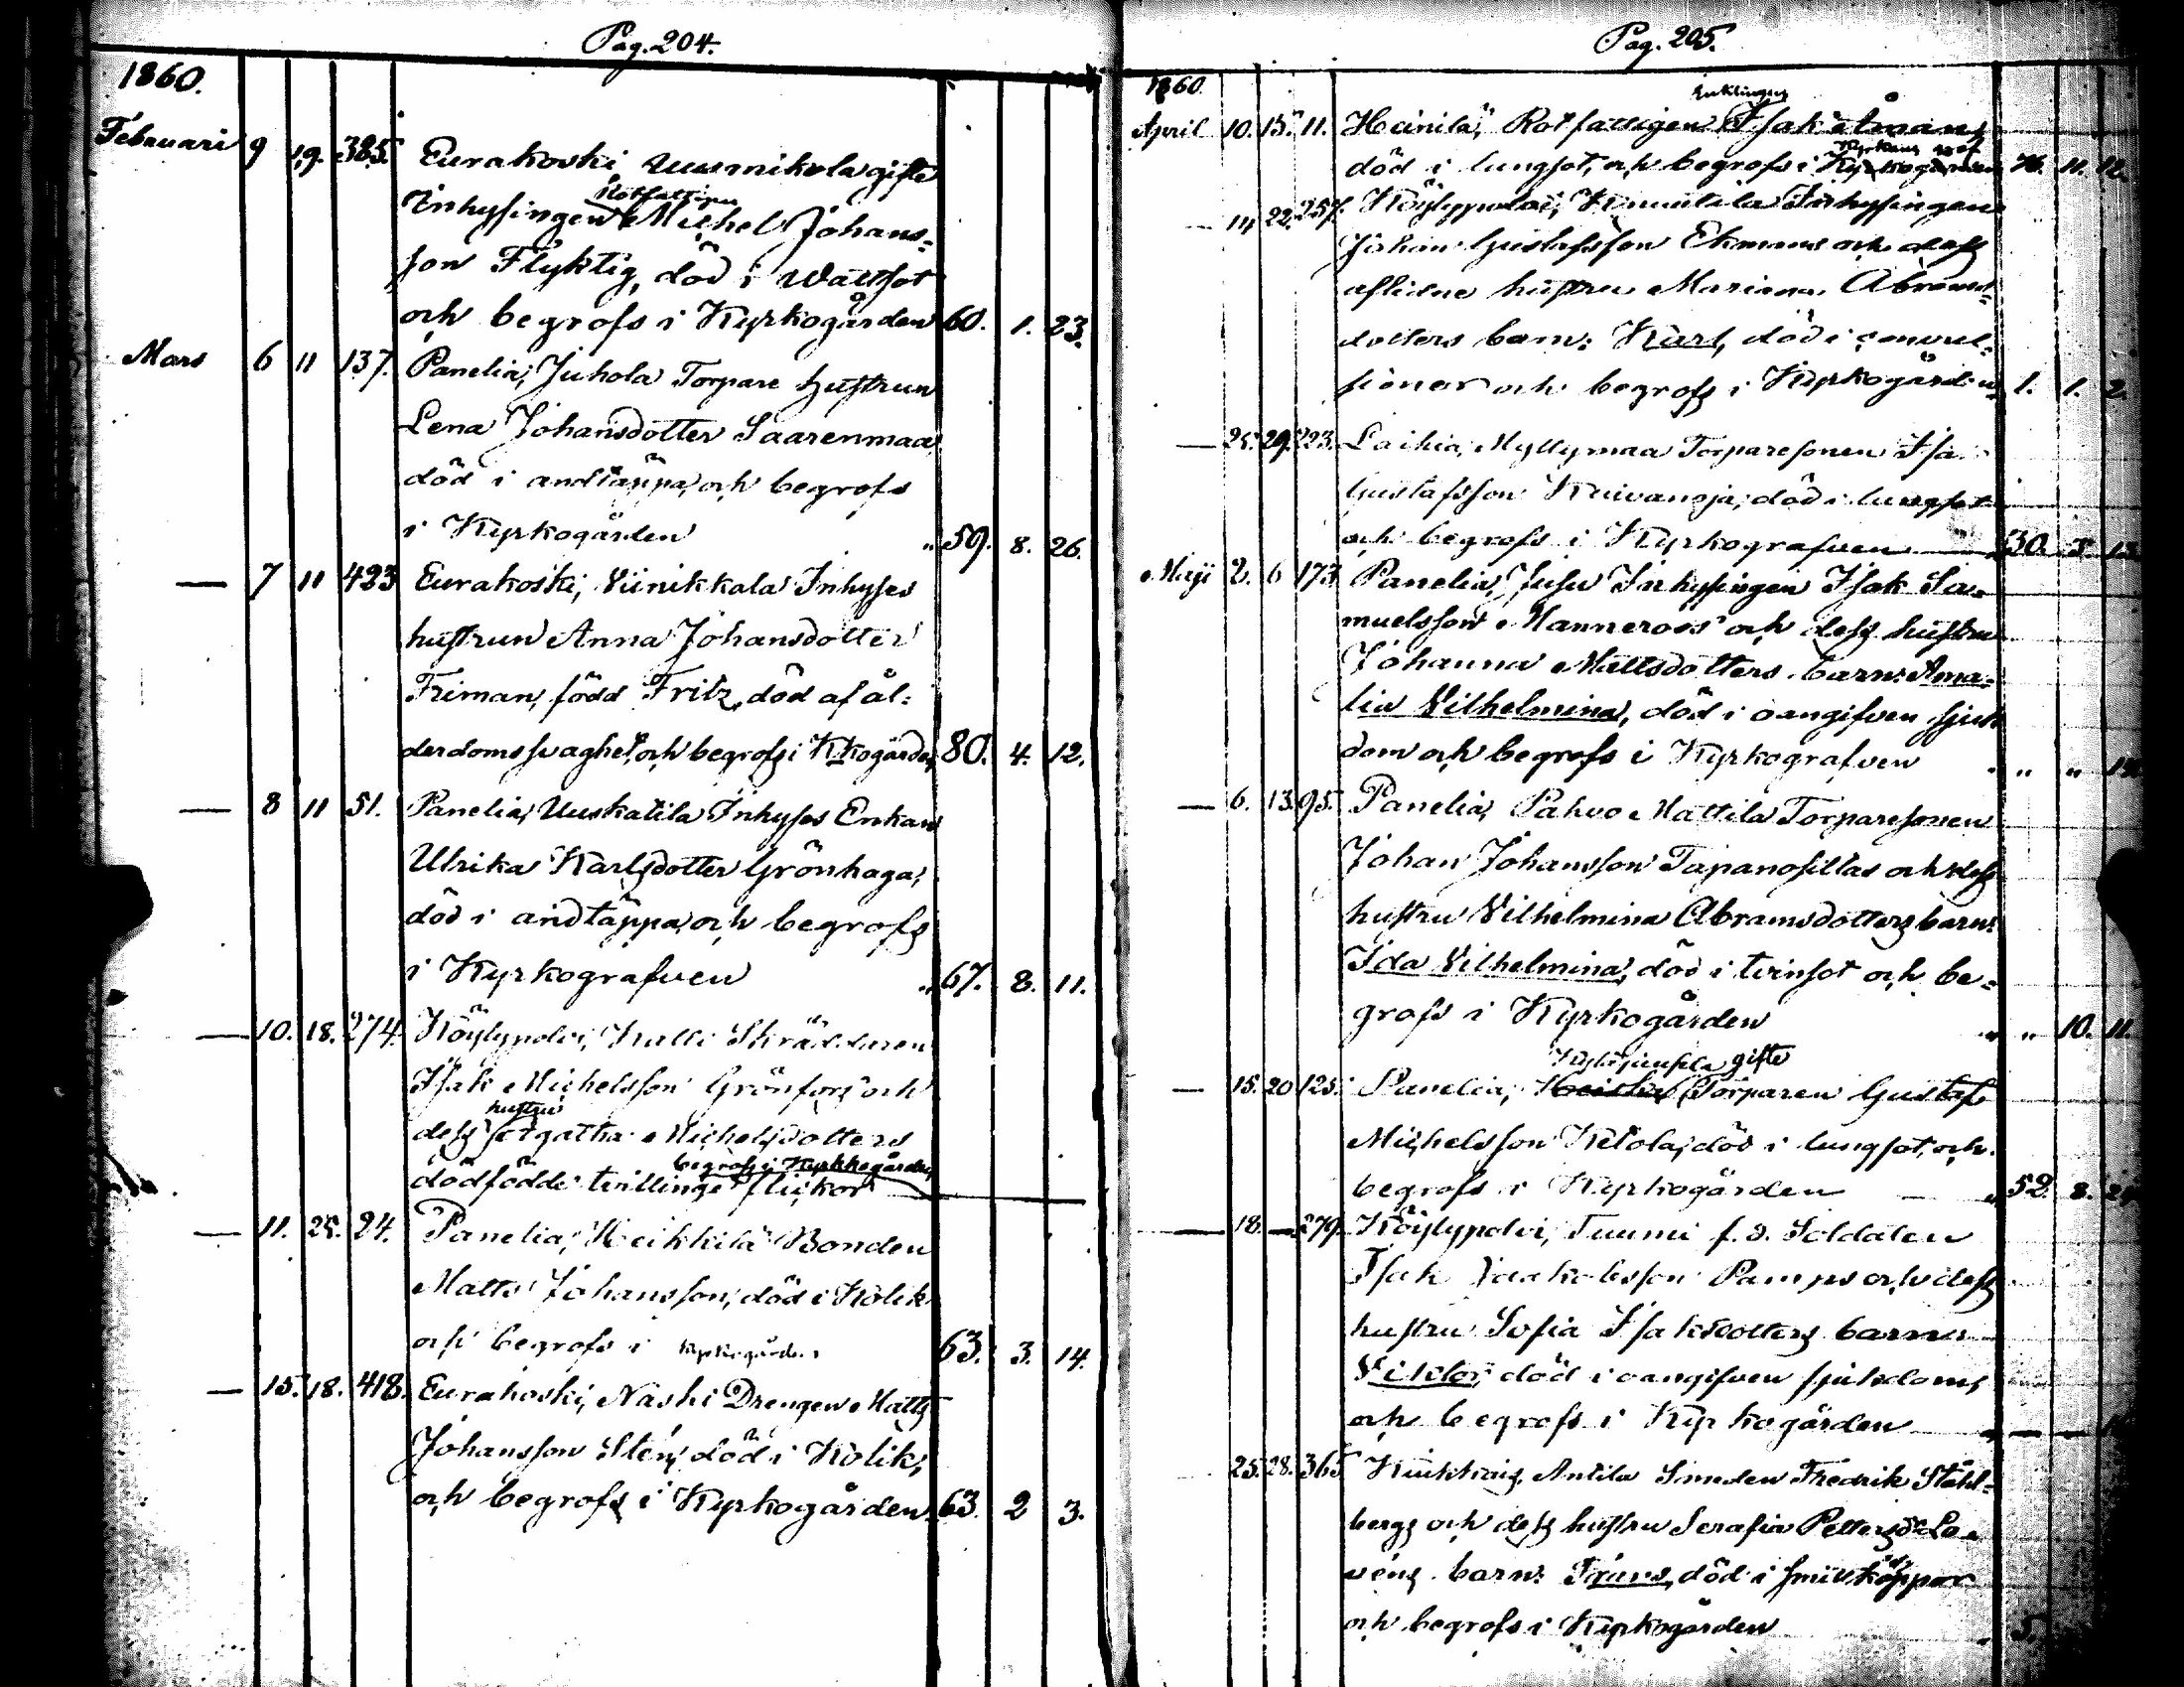 Pag. 204.
1860.
Februari 9 19. 385. Eurakoski Uusnikola gifte
Rotfattigen
Inhysingen Michel Johans=
son Flyktig, död i Wattsot
och begrofs i Kyrkogården 60. 1. 23.
Mars 6 11 137. Panelia, Juhola Torpare hustrun
Lena Johansdotter Saarenmaa
död i andtäppa, och begrofs
i Kyrkogården " 59. 8. 26.
— 7 11 423 Eurakoski, Viinikkala Inhyses
hustrun Anna Johansdotter
Friman, född Fritz, död af ål=
derdomssvaghet, och begrofs i Kkogården 80. 4. 12.
— 8 11 51. Panelia, Uuskatila Inhyses Enkan
Ulrika Karlsdotter Grönhaga,
död i andtäppa, och begrofs
i Kyrkografven " 67. 8. 11.
— 10. 18. 274. Köylypolvi, Kulli Skräddaren
Isak Michelsson Grönfors och
hustru
dess Agatha Michelsdotters
begrofs i Kyrkkogården
dödfödde tvillinge flickor
— 11. 25. 24. Panelia, Heikkilä Bonden
Matts Johansson, död i Kolik
och begrofs i Kyrkogården 63. 3. 14.
— 15. 18. 418. Eurakoski, Naski Drengen Matts
Johansson Sten, död i Kolik,
och begrofs i Kyrkogården. 63. 2 3.
Pag. 205.
1860.
Enklingen
April 10. 15. 11. Heinilä, Rotfattigen Isak Åman,
död i lungsot, och begrofs i 11. 12.
14 22. 257. Köylypolvi, Inhysingen
Johan Gustafsson Ekmans och dess
aflidne hustru Mariana Abrams=
dotters barn: Karl, död i convul=
sioner och begrofs i Kyrkogården 1. 1. 2.
— 25. 29. 223. Laihia, Myllymaa Torparesonen Isa
Gustafsson Kuivanoja, död i lungsot
och begrofs i Kyrkografven 30.
Maji 2. 6 173. Panelia, Jusu Inhysingen Isak Sa=
muelsson Manneroos och dess hustru
Johanna Mattsdotters barn: Ama=
lia Vilhelmina, död i oangifven sjuk
dom och begrofs i Kyrkografven " "
— 6. 13. 95. Panelia, Pahvo Mattila Torparesonen
Johan Johansson Tapanosillas och dess
hustru Vilhelmina Abramsdotters barn:
Ida Vilhelmina, död i tvinsot och be=
grofs i Kyrkogården " " 10. 11.
gifte
— 15. 20 125. Panelia, Torparen Gustaf
Michelsson Ketola, död i lungsot, och
begrofs i Kyrkogården " 52. 8.
— 18. — 279. Köylypolvi, Tuumi f. d. Soldaten
Isak Jaakobsson Pamps och dess
hustru Sofia Isaksdotters barn
Viktor, död i oangifven sjukdom,
och begrofs i Kyrkogården
25. 28. 365. Antila Smeden Fredrik Ståhl=
bergs och dess hustru Serafia
barn: Frans, död i
och begrofs i Kyrkogården 5.